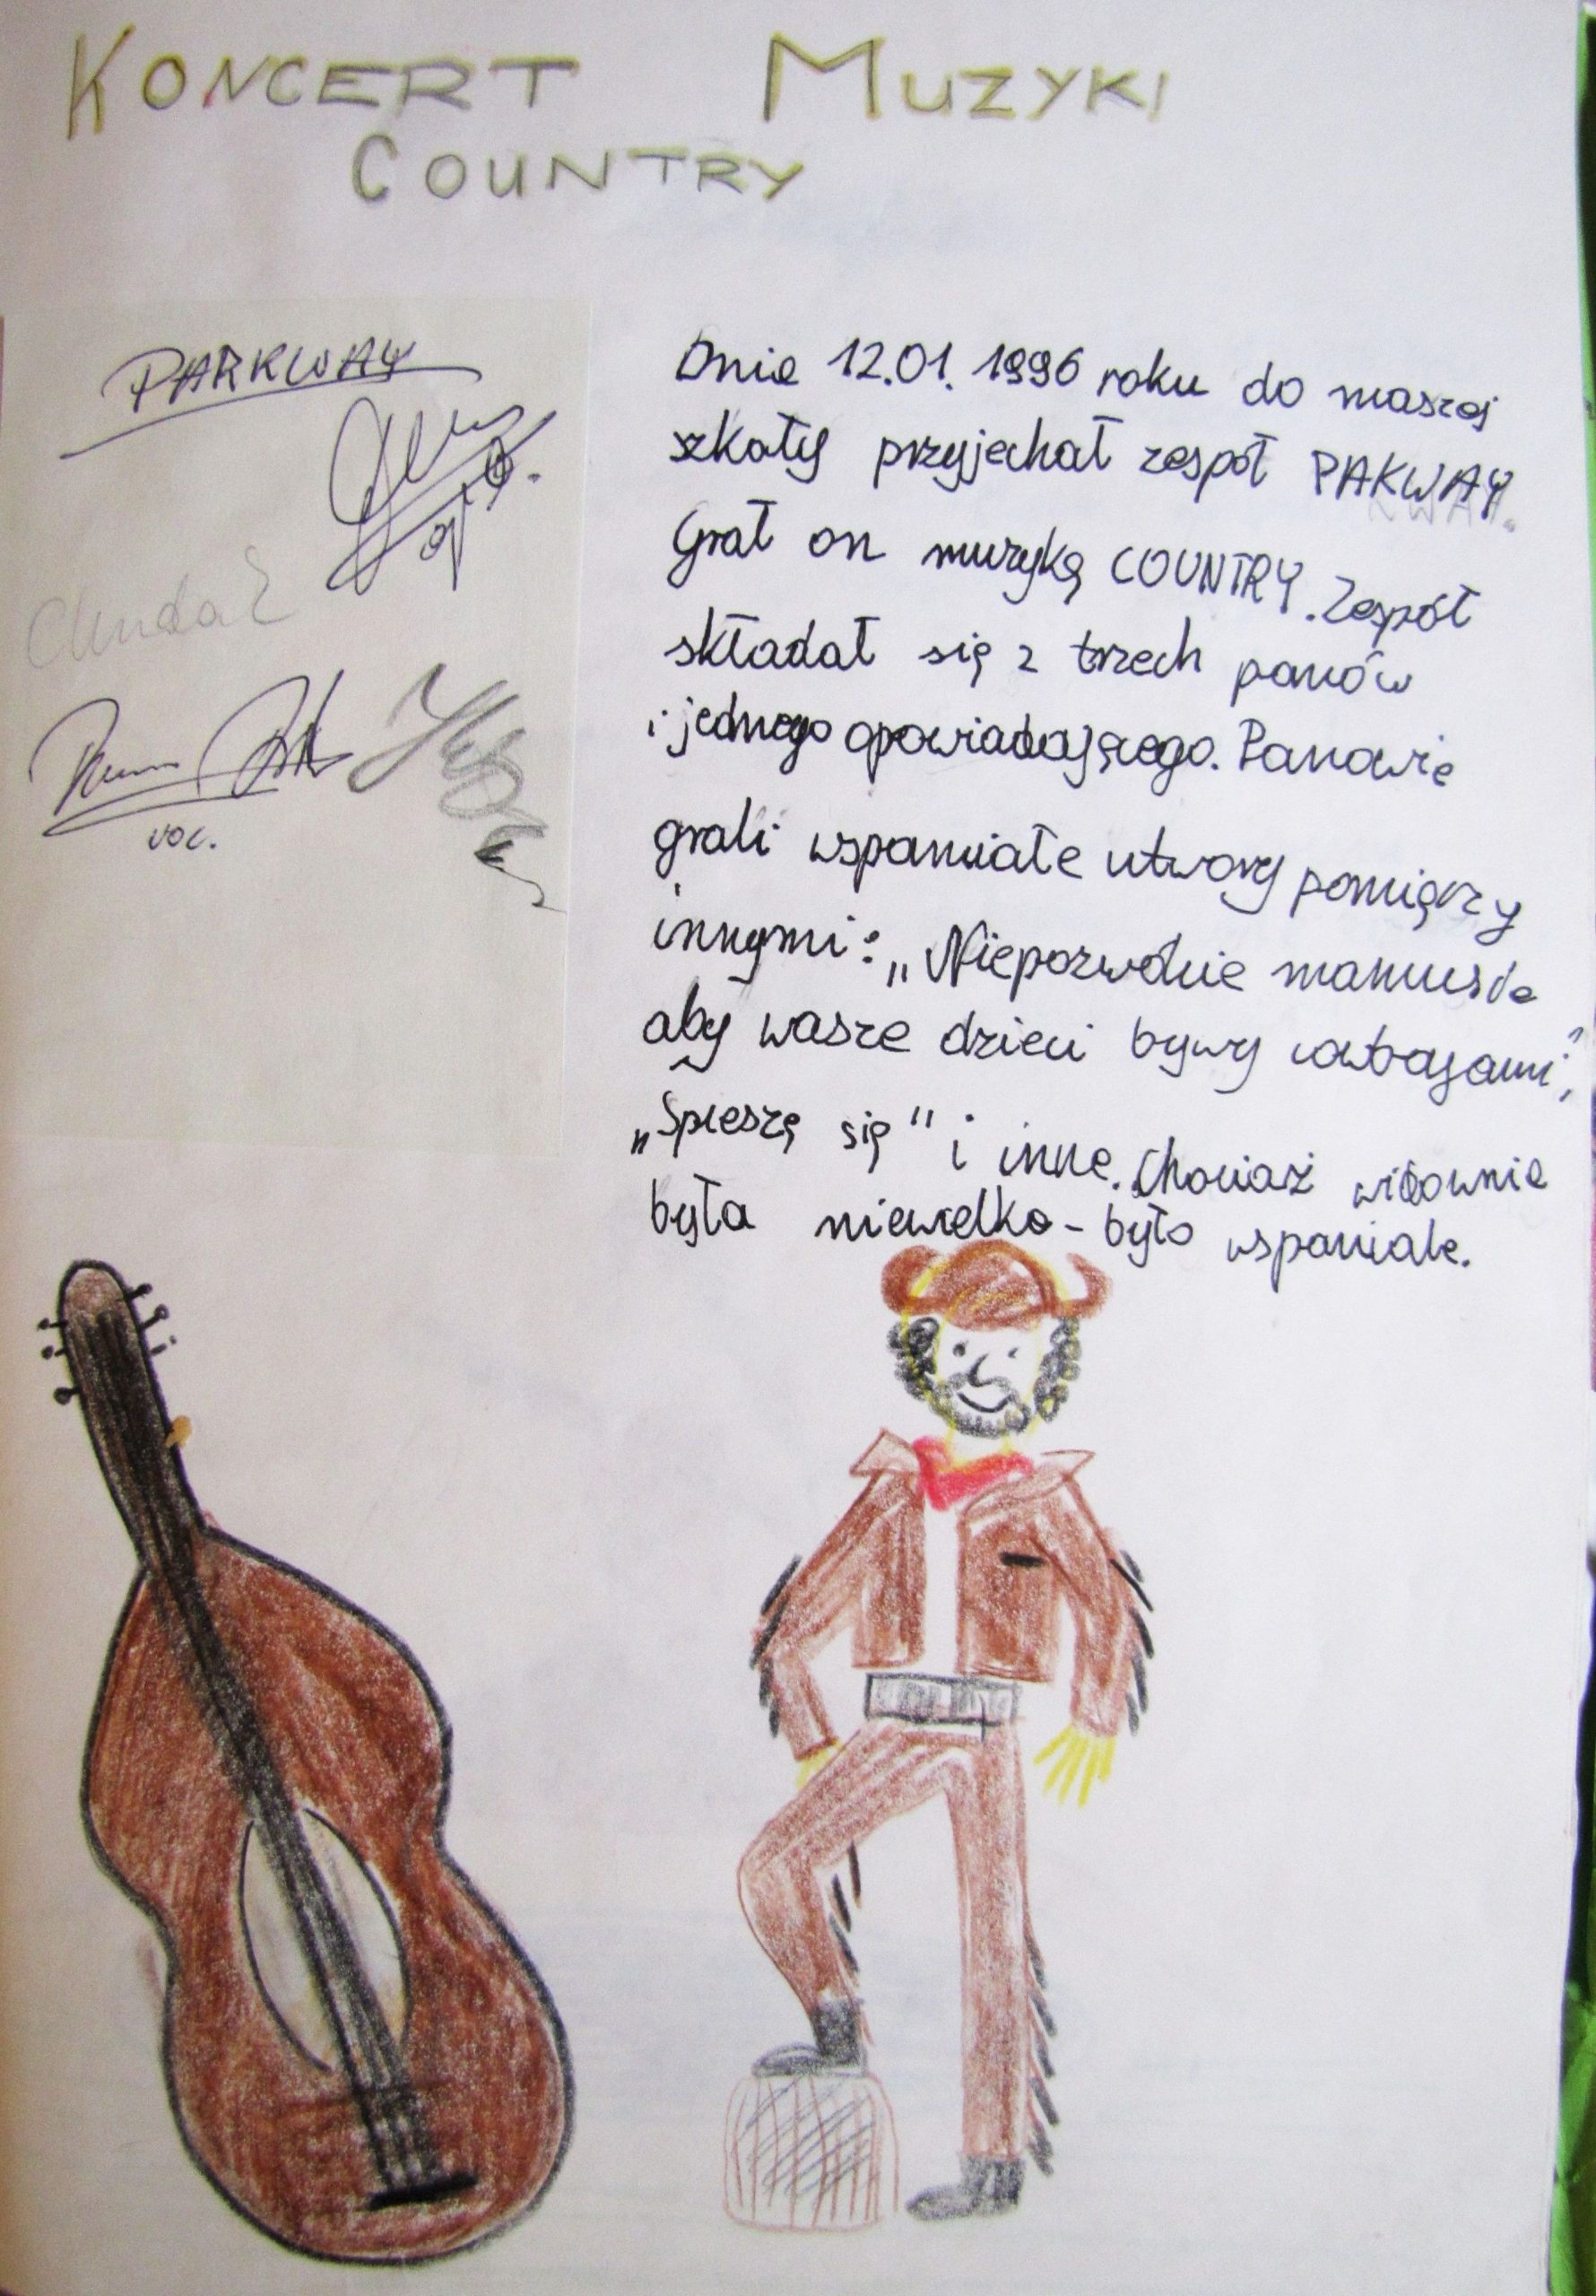 KONCERT MUZYKI
COUNTRY
PARKWAY
voc.
Dnia 12.01.1996 roku do naszej
szkoły przyjechał zespół PAKWAY.
Grał on muzykę COUNTRY. Zespół
składał się z trzech panów
i jednego opowiadającego. Panowie
grali wspaniałe utwory pomiędzy
innymi: „Niepozwólcie mamusie
aby wasze dzieci bywy cowboyami”,
„Spieszę się” i inne. Chociaż widownia
była niewielka - było wspaniale.